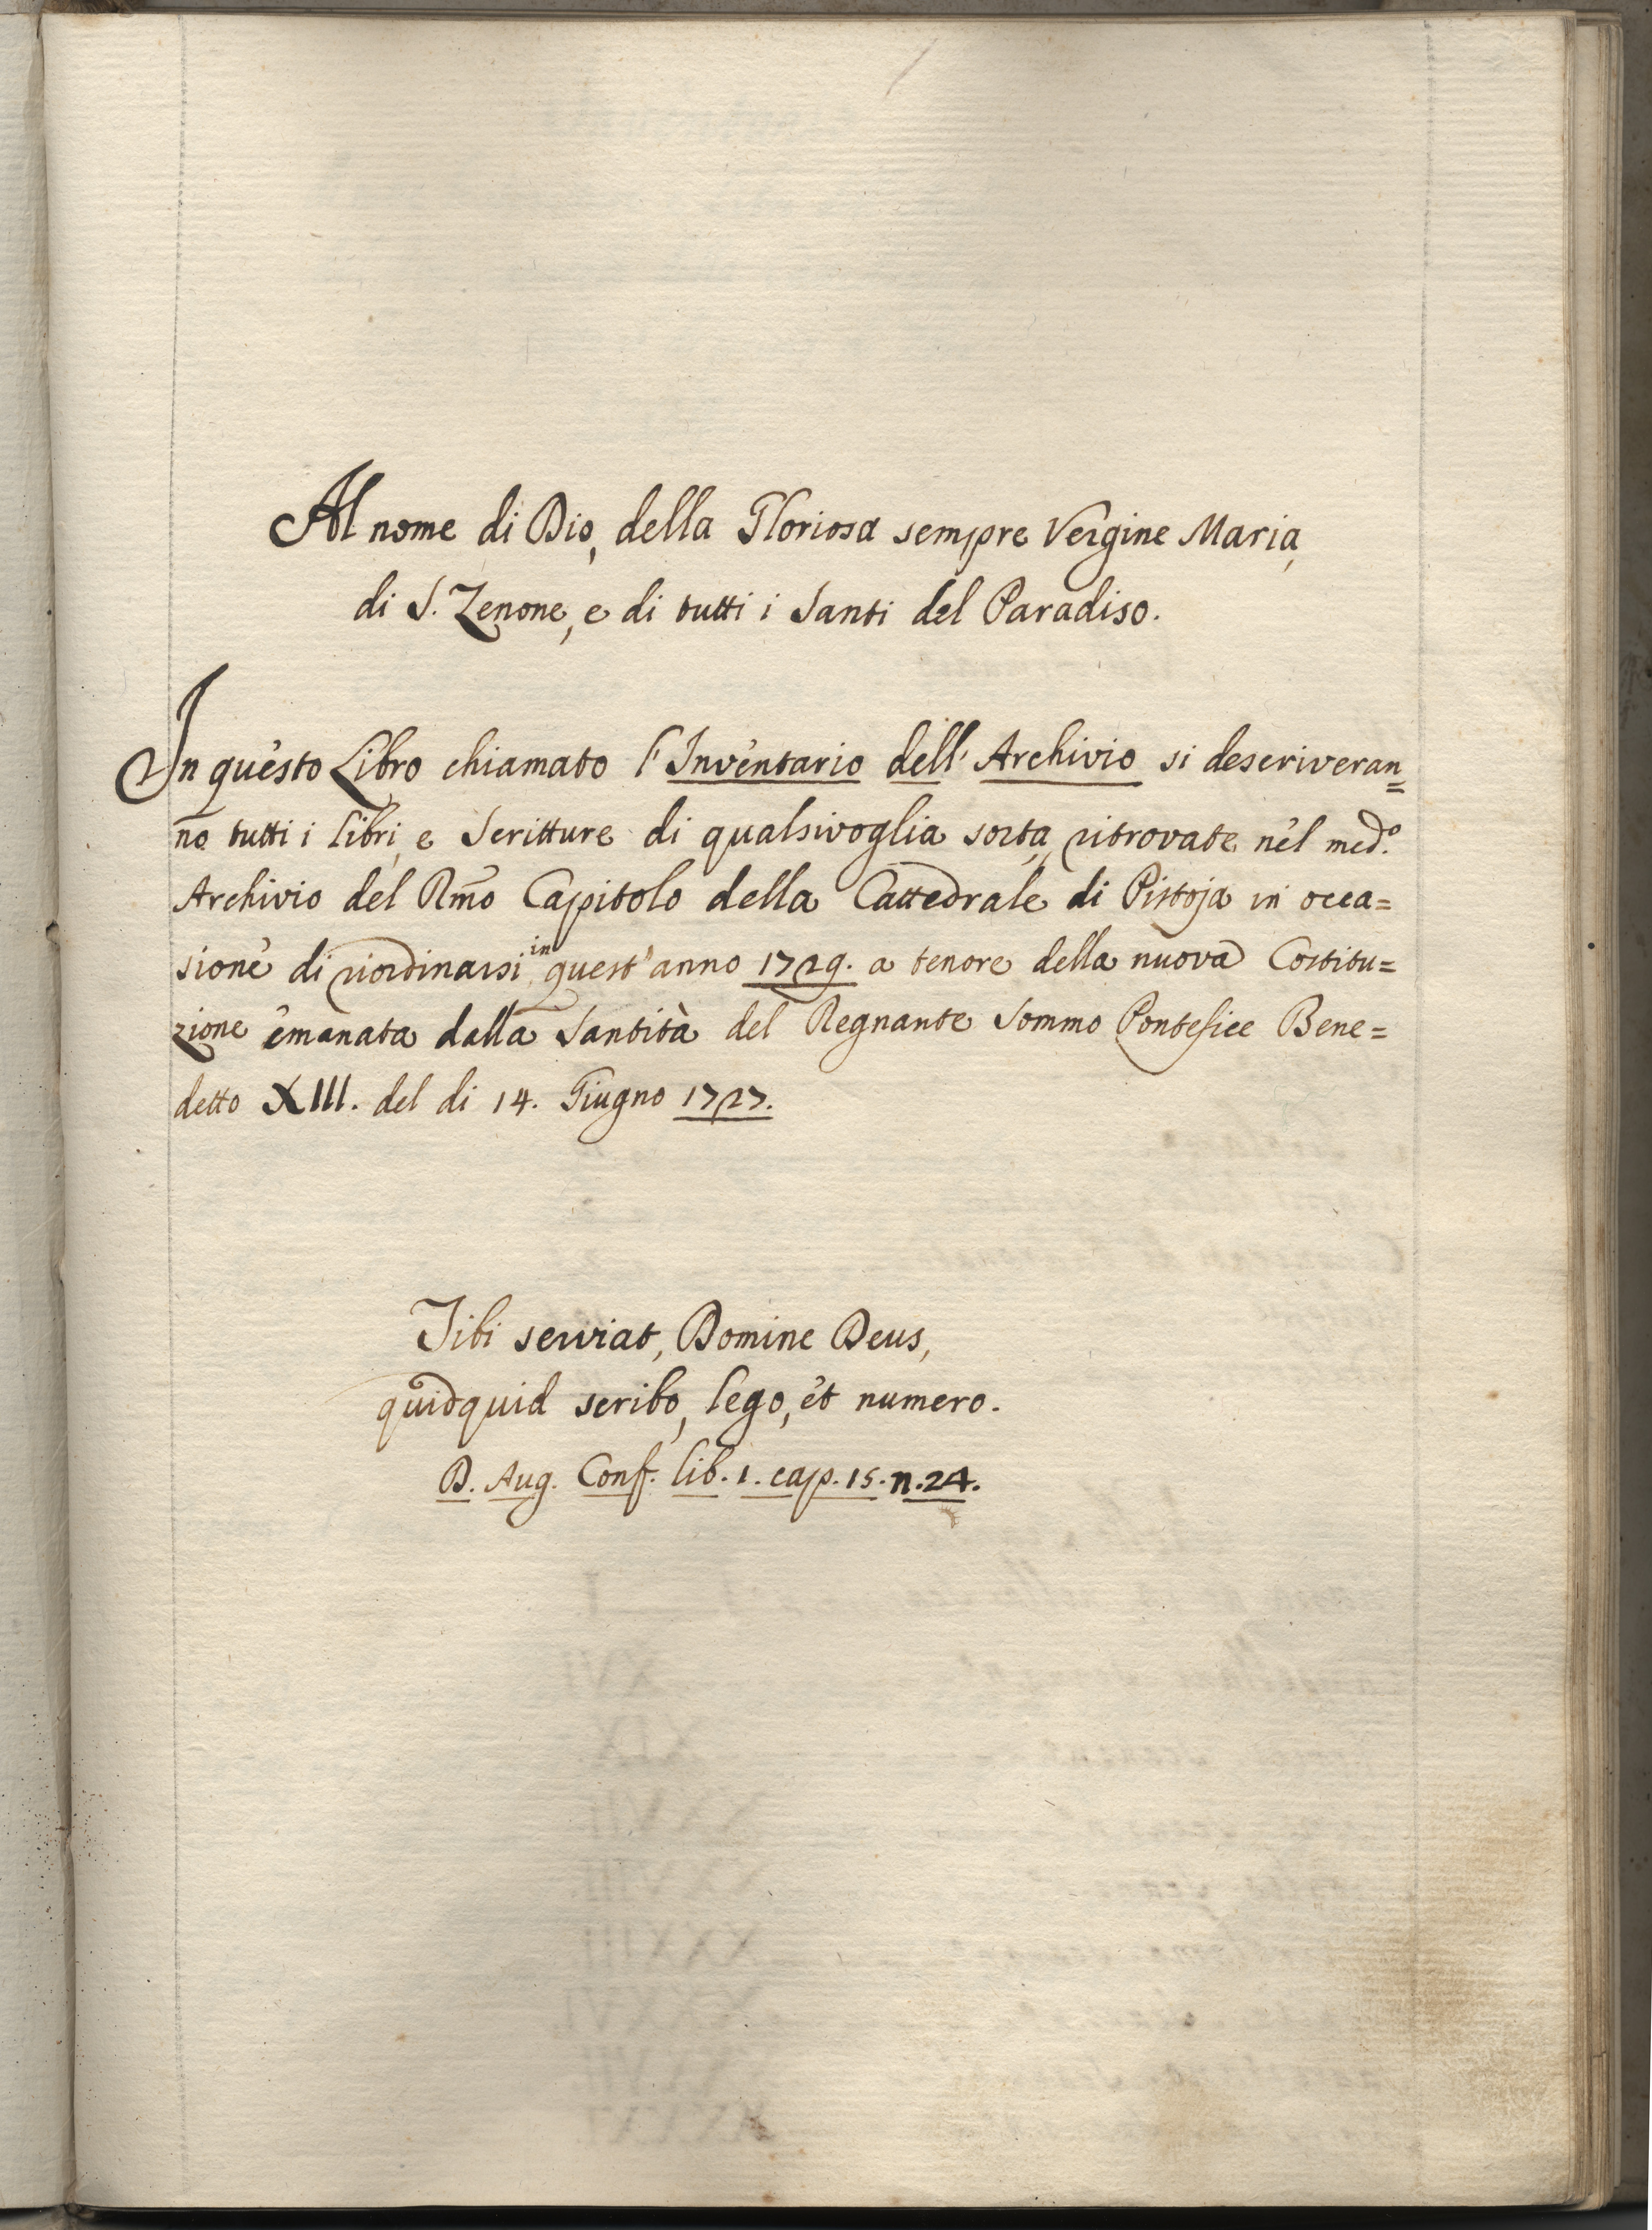 Al nome di Dio, della Gloriosa sempre Vergine Maria,
di S. Zenone, e di tutti i Santi del Paradiso.
In questo Libro chiamato l'Inventario dell'Archivio si descriveran=
no tutti i libri, e Scritture di qualsivoglia sorta, ritrovate nel med.º
Archivio del Rm̃o Capitolo della Cattedrale di Pistoja in occa=
sione di riordinarsi in quest'anno 1729. a tenore della nuova Costitu=
zione emanata dalla Santità del Regnante Sommo Pontefice Bene=
detto XIII. del di 14. Giugno 1727.
Tibi serviat, Domine Deus,
quidquid scribo, lego, et numero.
D. Aug. Conf. lib. 1. cap. 15. n. 24.